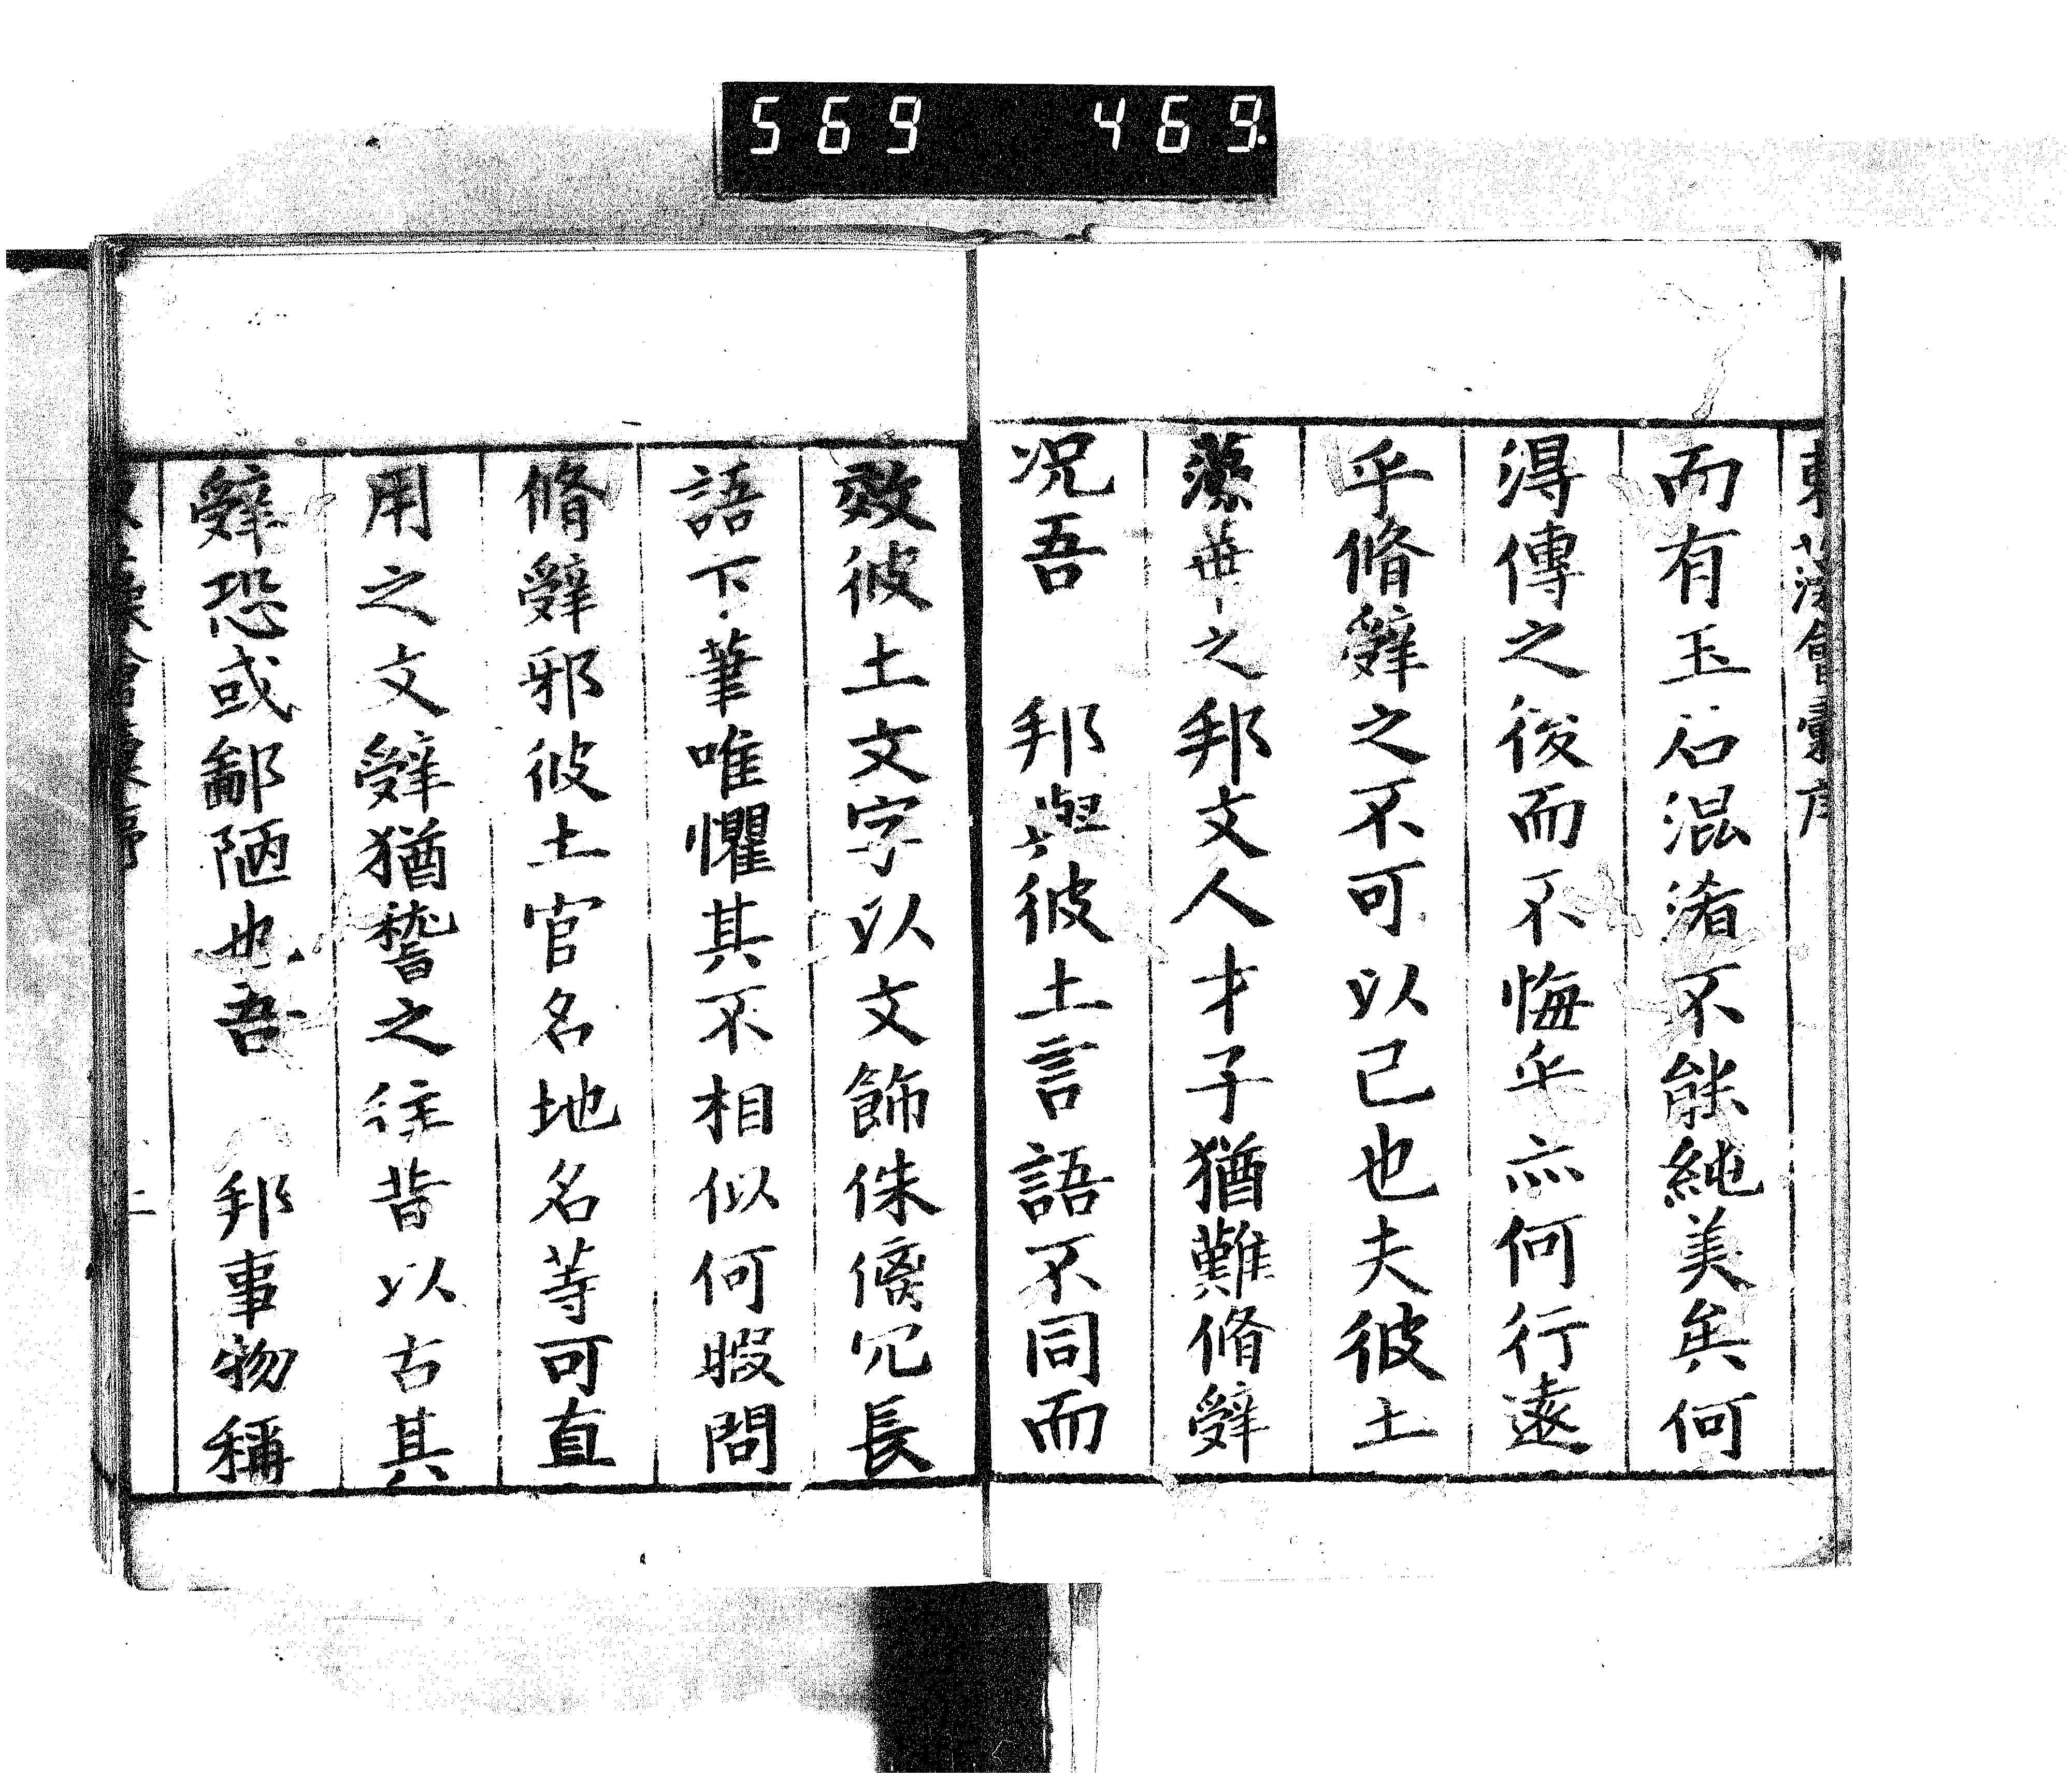 569 469.
而有玉石混淆不能純美矣何
得傳之後而不悔乎亦何行遠
乎脩辭之不可以已也夫彼土
藻華之邦文人才子猶難脩辭
况吾 邦與彼土言語不同而
效彼土文字以文飾侏僞冗長
語下筆唯懼其不相似何暇問
脩辭邪彼土官名地名等可直
用之文辭猶稽之往昔以古其
辭恐或鄙陋也吾 邦事物稱